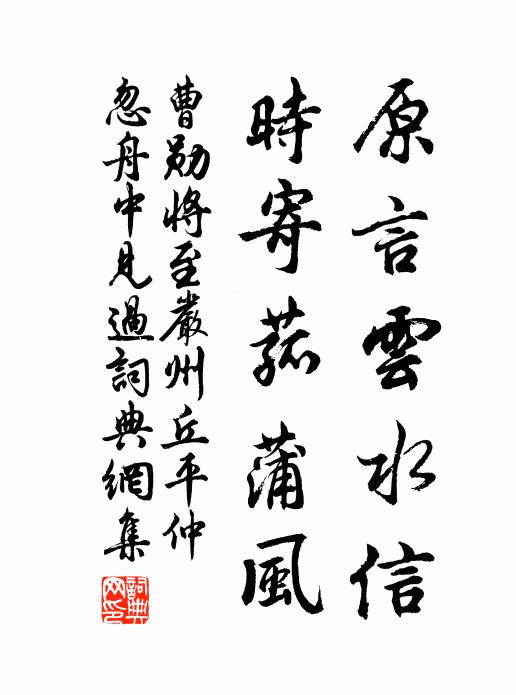 原言雲水信
時寄菰蒲風
曹勛將至嚴州丘平仲
忽舟中見過詞典網集
詞典网印